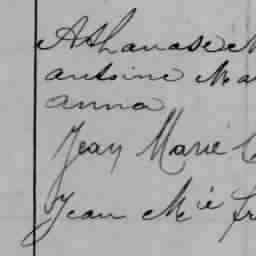 Athanase M
antoine Ma
anna
Jean Marie
Jean Mie Fr